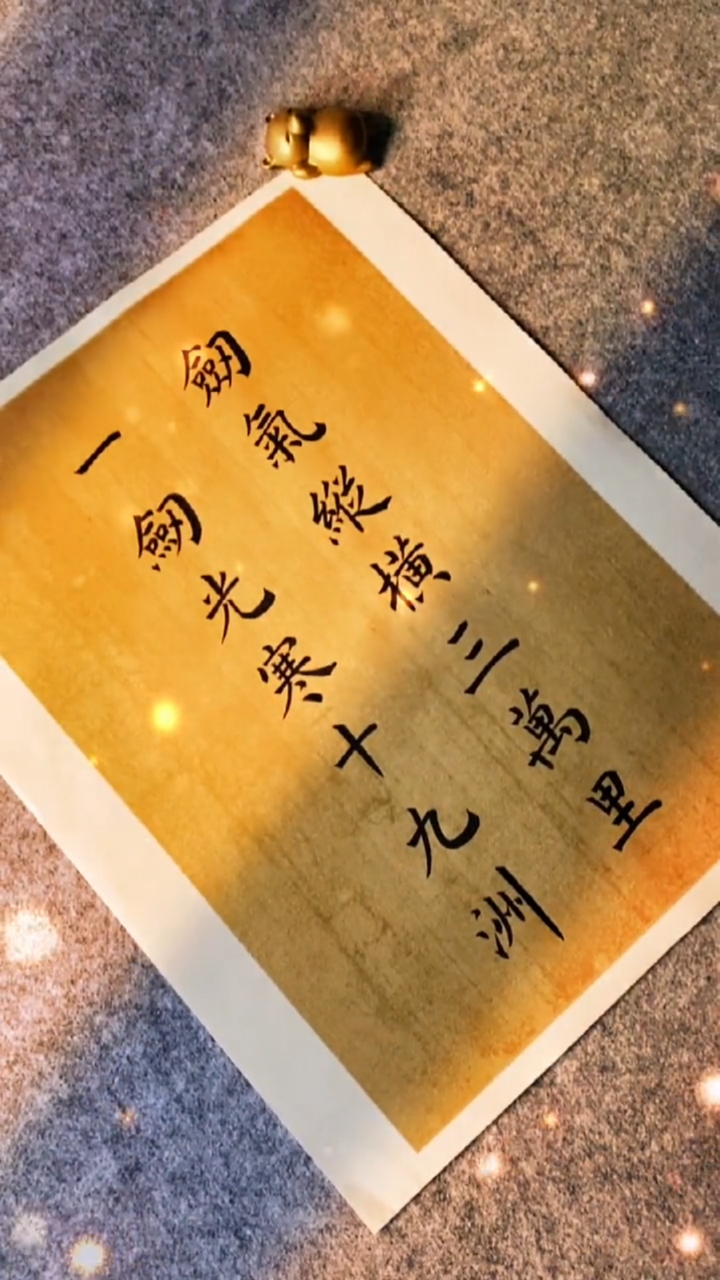 劔氣縱橫三萬里
一劔光寒十九洲